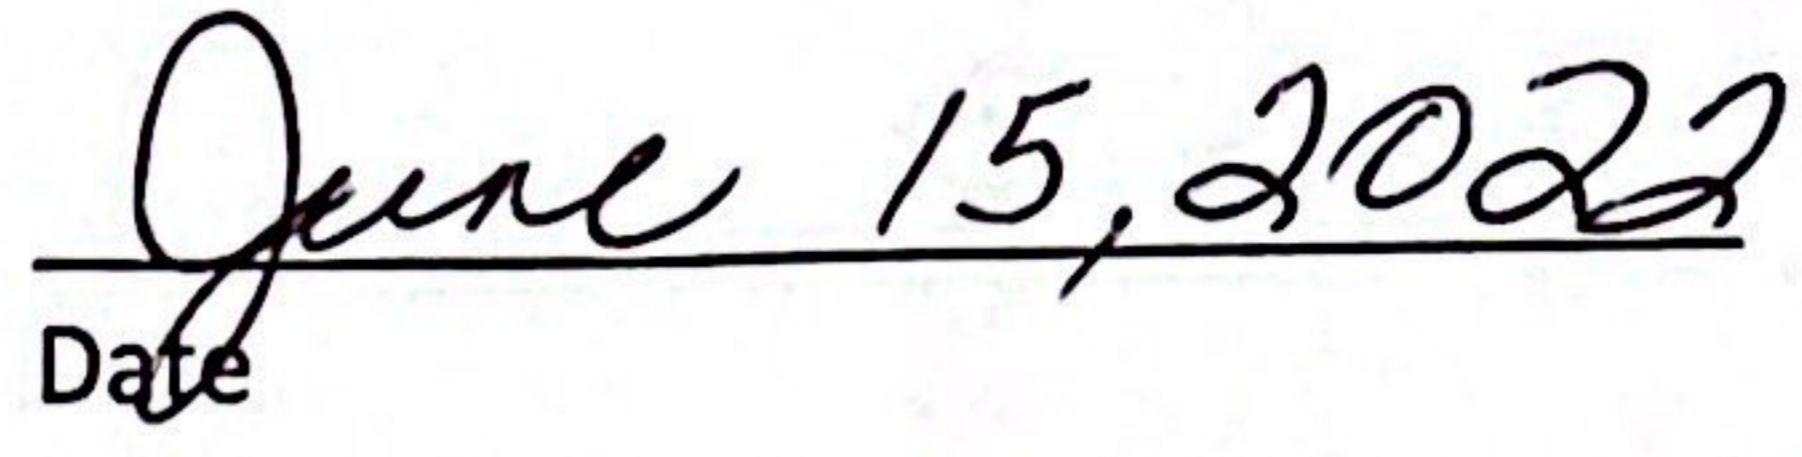 June 15, 2022
Date